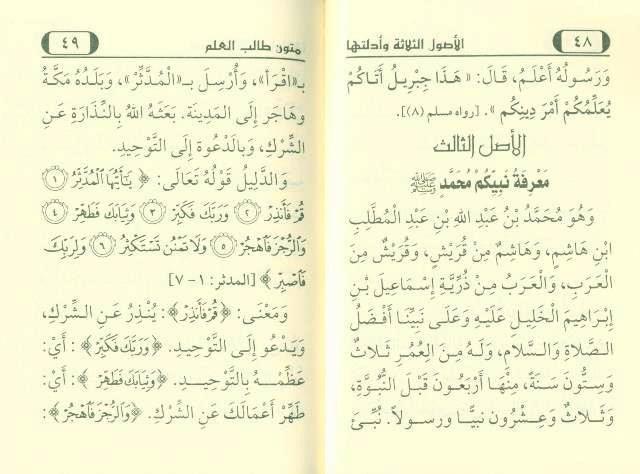 ٤٨
الأصول الثلاثة وأدلتها
وَرَسُولُهُ أَعْلَمُ، قَالَ: «هَذَا جِبْرِيلُ أَتَاكُمْ
يُعَلِّمُكُمْ أَمْرَ دِينِكُمْ». [رواه مسلم (٨)].
الأصل الثالث
مَعْرِفَةُ نَبِيِّكُمْ مُحَمَّدٍ ﷺ
وَهُوَ مُحَمَّدُ بْنُ عَبْدِ اللهِ بْنِ عَبْدِ الْمُطَّلِبِ
ابْنِ هَاشِمٍ، وَهَاشِمٌ مِنْ قُرَيْشٍ، وَقُرَيْشٌ مِنَ
الْعَرَبِ، وَالْعَرَبُ مِنْ ذُرِّيَّةِ إِسْمَاعِيلَ بْنِ
إِبْرَاهِيمَ الْخَلِيلِ عَلَيْهِ وَعَلَى نَبِيِّنَا أَفْضَلُ
الصَّلَاةِ وَالسَّلَامِ، وَلَهُ مِنَ الْعُمُرِ ثَلَاثٌ
وَسِتُّونَ سَنَةً، مِنْهَا أَرْبَعُونَ قَبْلَ النُّبُوَّةِ،
وَثَلَاثٌ وَعِشْرُونَ نبيًّا ورسولاً. نُبِّئَ
متون طالب العلم
٤٩
بـ«اقْرَأْ»، وَأُرْسِلَ بـ«الْمُدَّثِّرْ»، وَبَلَدُهُ مَكَّةُ
وهَاجَرَ إِلَى الْمَدِينَةِ. بَعَثَهُ اللهُ بِالنِّذَارَةِ عَنِ
الشِّرْكِ، وَبِالدَّعْوَةِ إِلَى التَّوْحِيدِ.
وَالدَّلِيلُ قَوْلُهُ تَعَالَى: ﴿يَا أَيُّهَا الْمُدَّثِّرُ ١
قُمْ فَأَنذِرْ ٢ وَرَبَّكَ فَكَبِّرْ ٣ وَثِيَابَكَ فَطَهِّرْ ٤
وَالرُّجْزَ فَاهْجُرْ ٥ وَلَا تَمْنُن تَسْتَكْثِرُ ٦ وَلِرَبِّكَ
فَاصْبِرْ﴾ [المدثر: ١ - ٧]
وَمَعْنَى: ﴿قُمْ فَأَنذِرْ﴾: يُنْذِرُ عَنِ الشِّرْكِ،
وَيَدْعُو إِلَى التَّوْحِيدِ. ﴿وَرَبَّكَ فَكَبِّرْ﴾: أَيْ:
عَظِّمْهُ بِالتَّوْحِيدِ. ﴿وَثِيَابَكَ فَطَهِّرْ﴾: أَيْ:
طَهِّرْ أَعْمَالَكَ عَنِ الشِّرْكِ. ﴿وَالرُّجْزَ فَاهْجُرْ﴾: